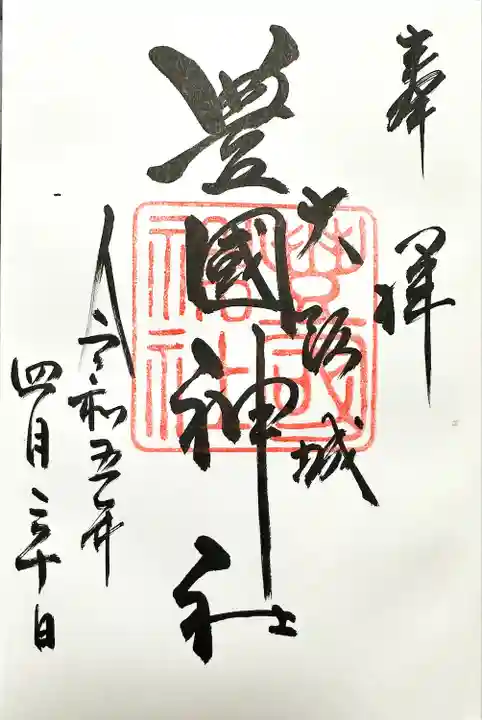 奉拝
大阪城
豊國神社
令和五年
四月三十日
豊国
神社